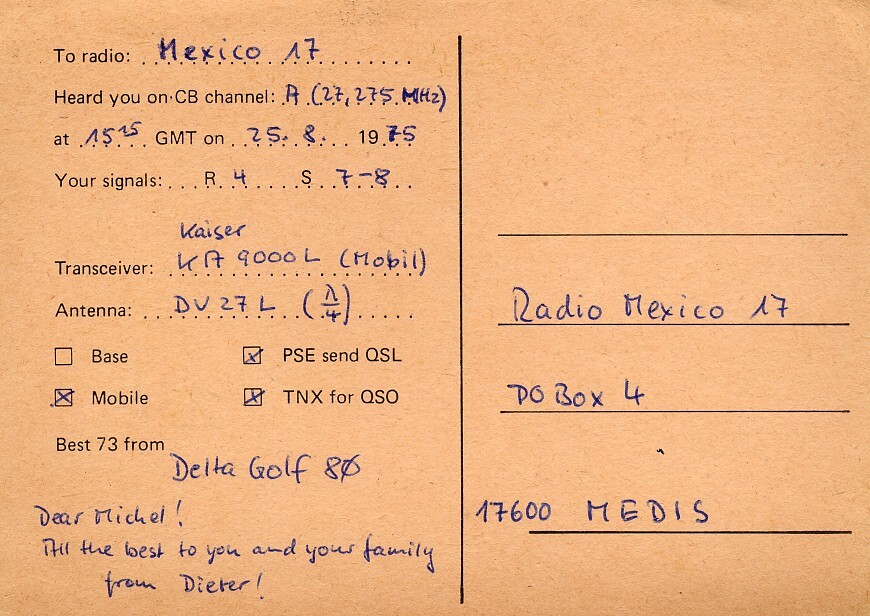 To radio: Mexico 17
Heard you on CB channel: A (27,275 MHz)
at 15 25 GMT on 25. 8. 1975
Your signals: R 4 S 7-8
Kaiser
Transceiver: KA 9000L (Mobil)
Antenna: DV 27 L (λ/4)
☐ Base ☒ PSE send QSL
☒ Mobile ☒ TNX for QSO
Best 73 from
Delta Golf 8Ø
Dear Michel!
All the best to you and your family
from Dieter!
Radio Mexico 17
PO Box 4
17600 MEDIS